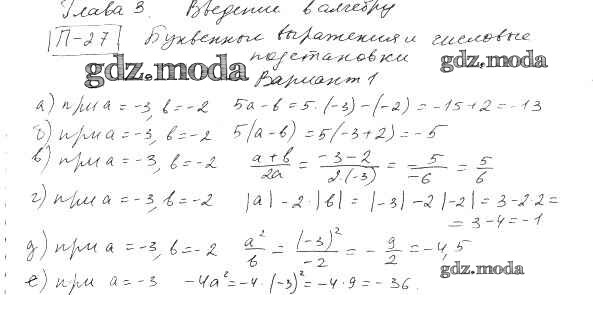 Глава 3. Введение в алгебру
П-27 Буквенные выражения и числовые
подстановки
gdz.moda
gdz.moda
Вариант 1
а) при a = -3, b = -2   5a - b = 5·(-3) - (-2) = -15 + 2 = -13
б) при a = -3, b = -2   5(a - b) = 5(-3 + 2) = -5
в) при a = -3, b = -2   (a + b)/(2a) = (-3 - 2)/(2(-3)) = (-5)/(-6) = 5/6
г) при a = -3, b = -2   |a| - 2·|b| = |-3| - 2|-2| = 3 - 2·2 =
= 3 - 4 = -1
д) при a = -3, b = -2   a²/b = (-3)²/(-2) = -9/2 = -4,5
gdz.moda
е) при a = -3   -4a² = -4·(-3)² = -4·9 = -36.